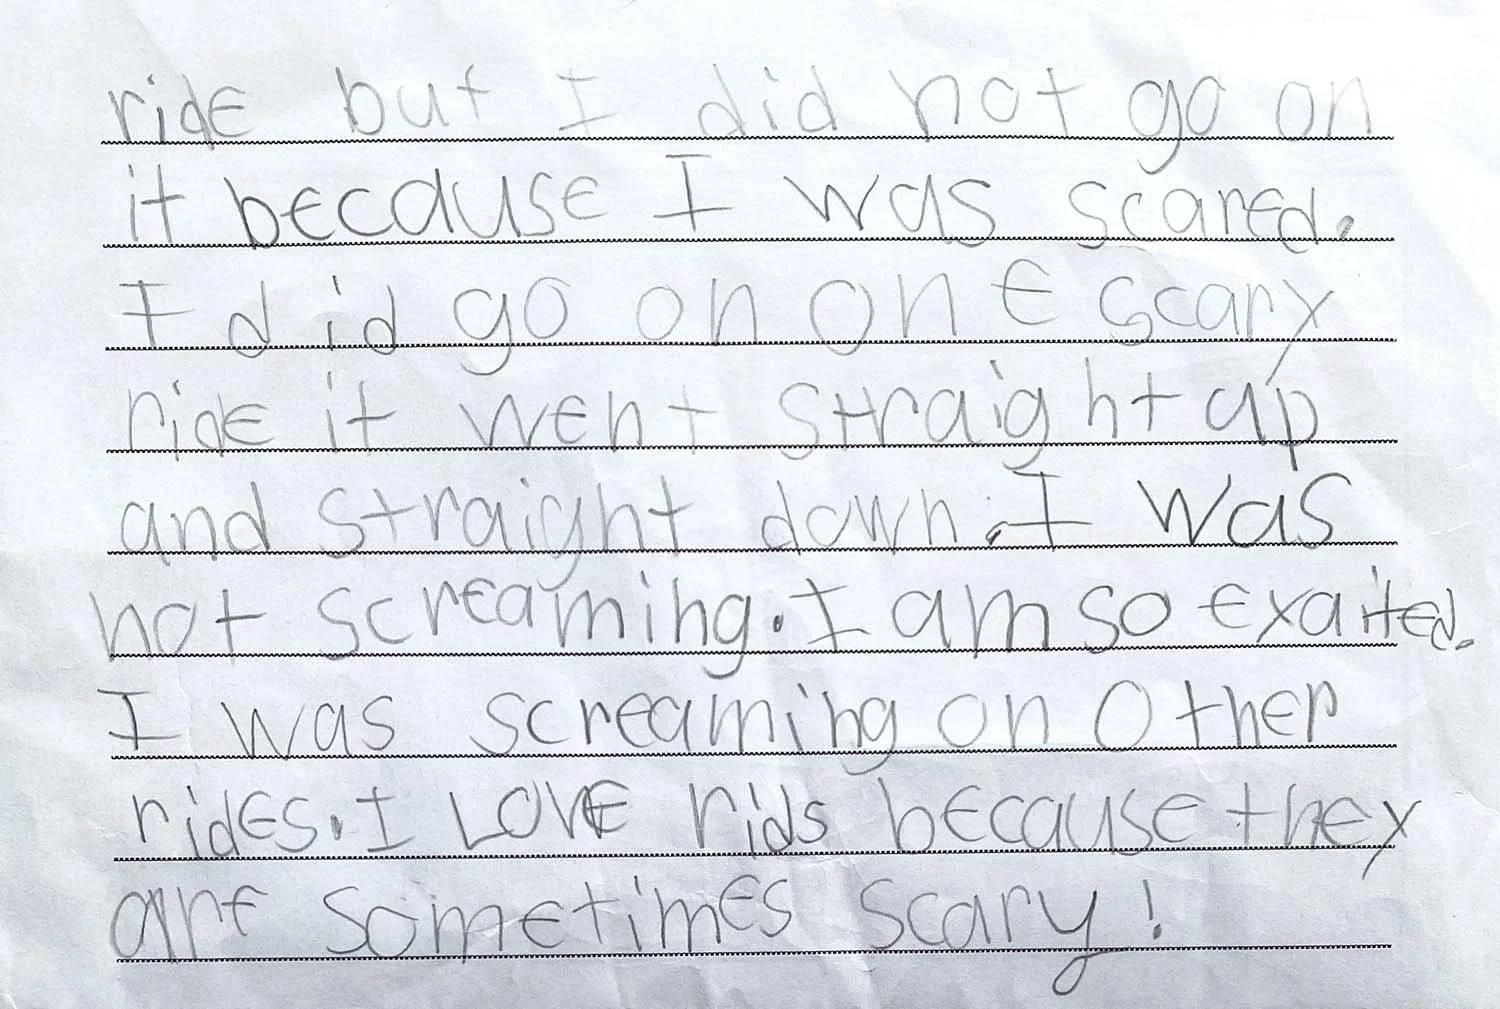 ride but I did not go on
it because I was scared.
I did go on one scary
ride it went straight up
and straight down. I was
not screaming. I am so exaited.
I was screaming on other
rides. I LOVE rids because they
are sometimes scary!